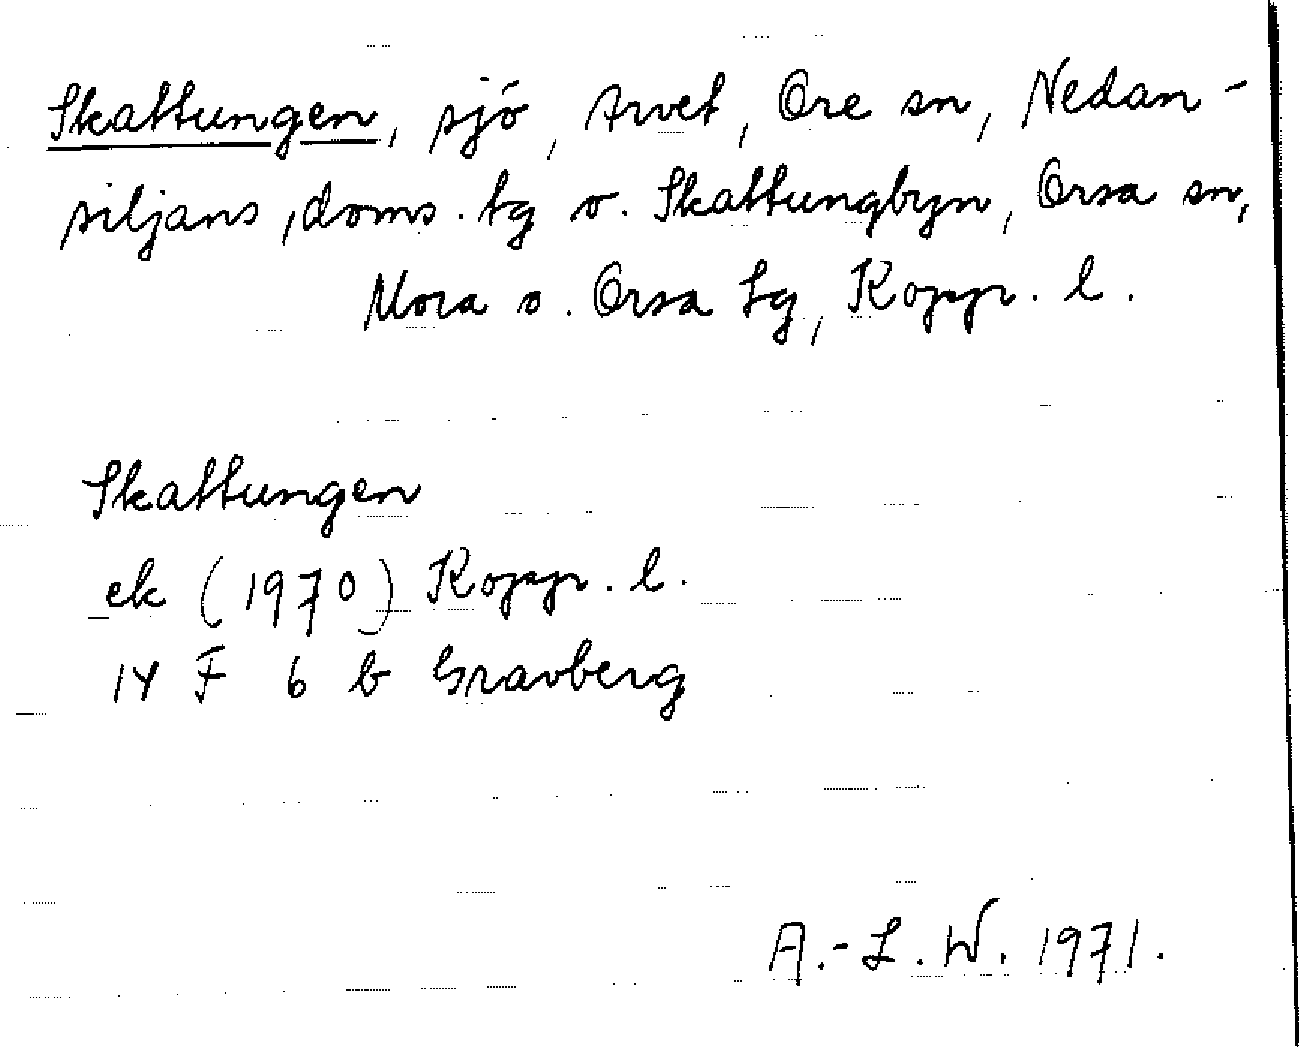 Skattungen, sjö, Arvet, Ore sn, Nedan-
siljans, doms. tg o. Skattungbyn, Orsa sn,
Mora o. Orsa tg, Kopp. l.
Skattungen
ek (1970) Kopp. l.
14 F 6 b Gravberg
A.-L. W. 1971.